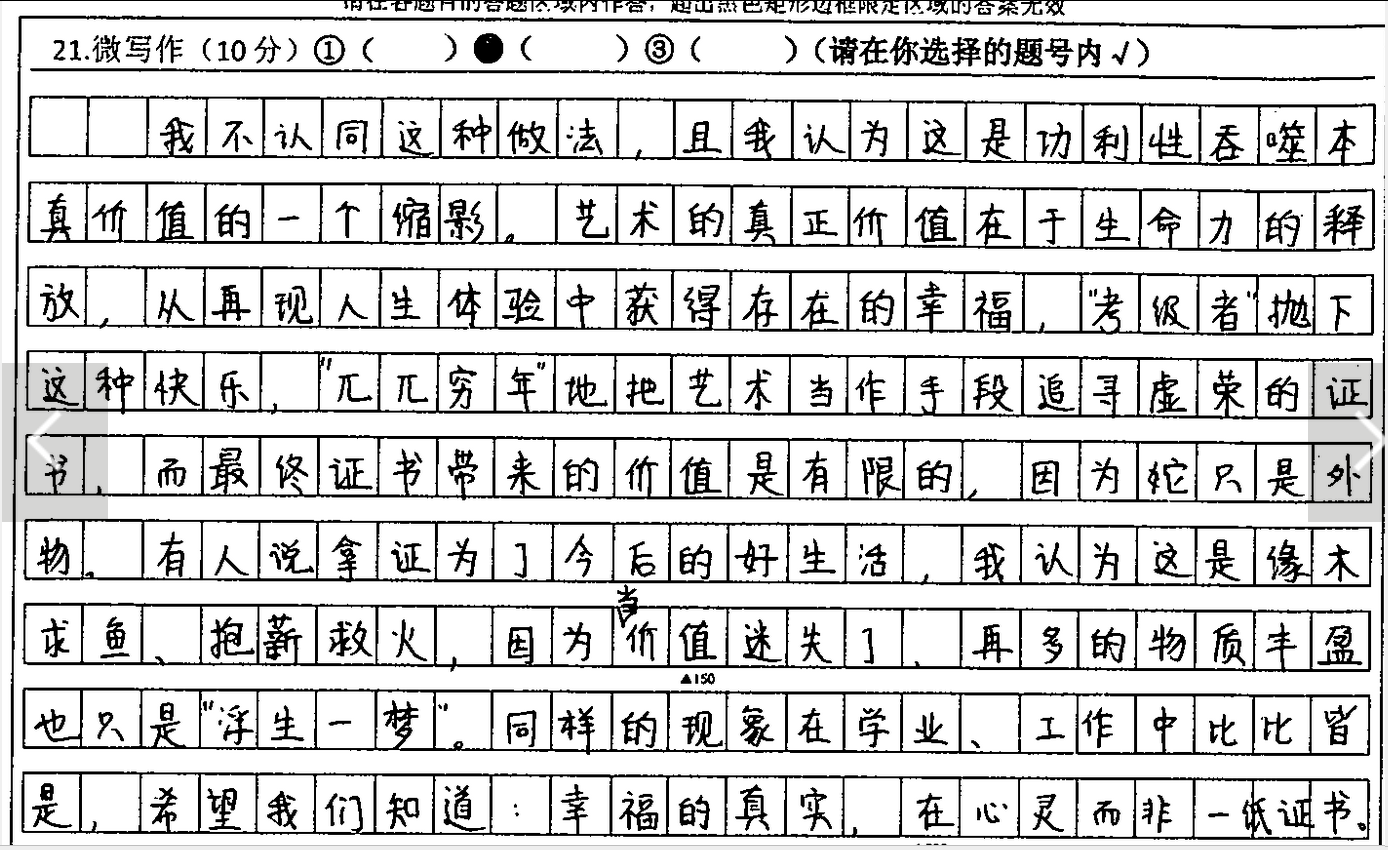 请在各题目的答题区域内作答，超出黑色矩形边框限定区域的答案无效
21.微写作（10分）①（　　）●（　　）③（　　）（请在你选择的题号内√）
我不认同这种做法，且我认为这是功利性吞噬本
真价值的一个缩影。艺术的真正价值在于生命力的释
放，从再现人生体验中获得存在的幸福，"考级者"抛下
这种快乐，"兀兀穷年"地把艺术当作手段追寻虚荣的证
书，而最终证书带来的价值是有限的，因为它只是外
物。有人说拿证为了今后的好生活，我认为这是缘木
求鱼、抱薪救火，因为当价值迷失了，再多的物质丰盈
▲150
也只是"浮生一梦"。同样的现象在学业、工作中比比皆
是，希望我们知道：幸福的真实，在心灵而非一纸证书。